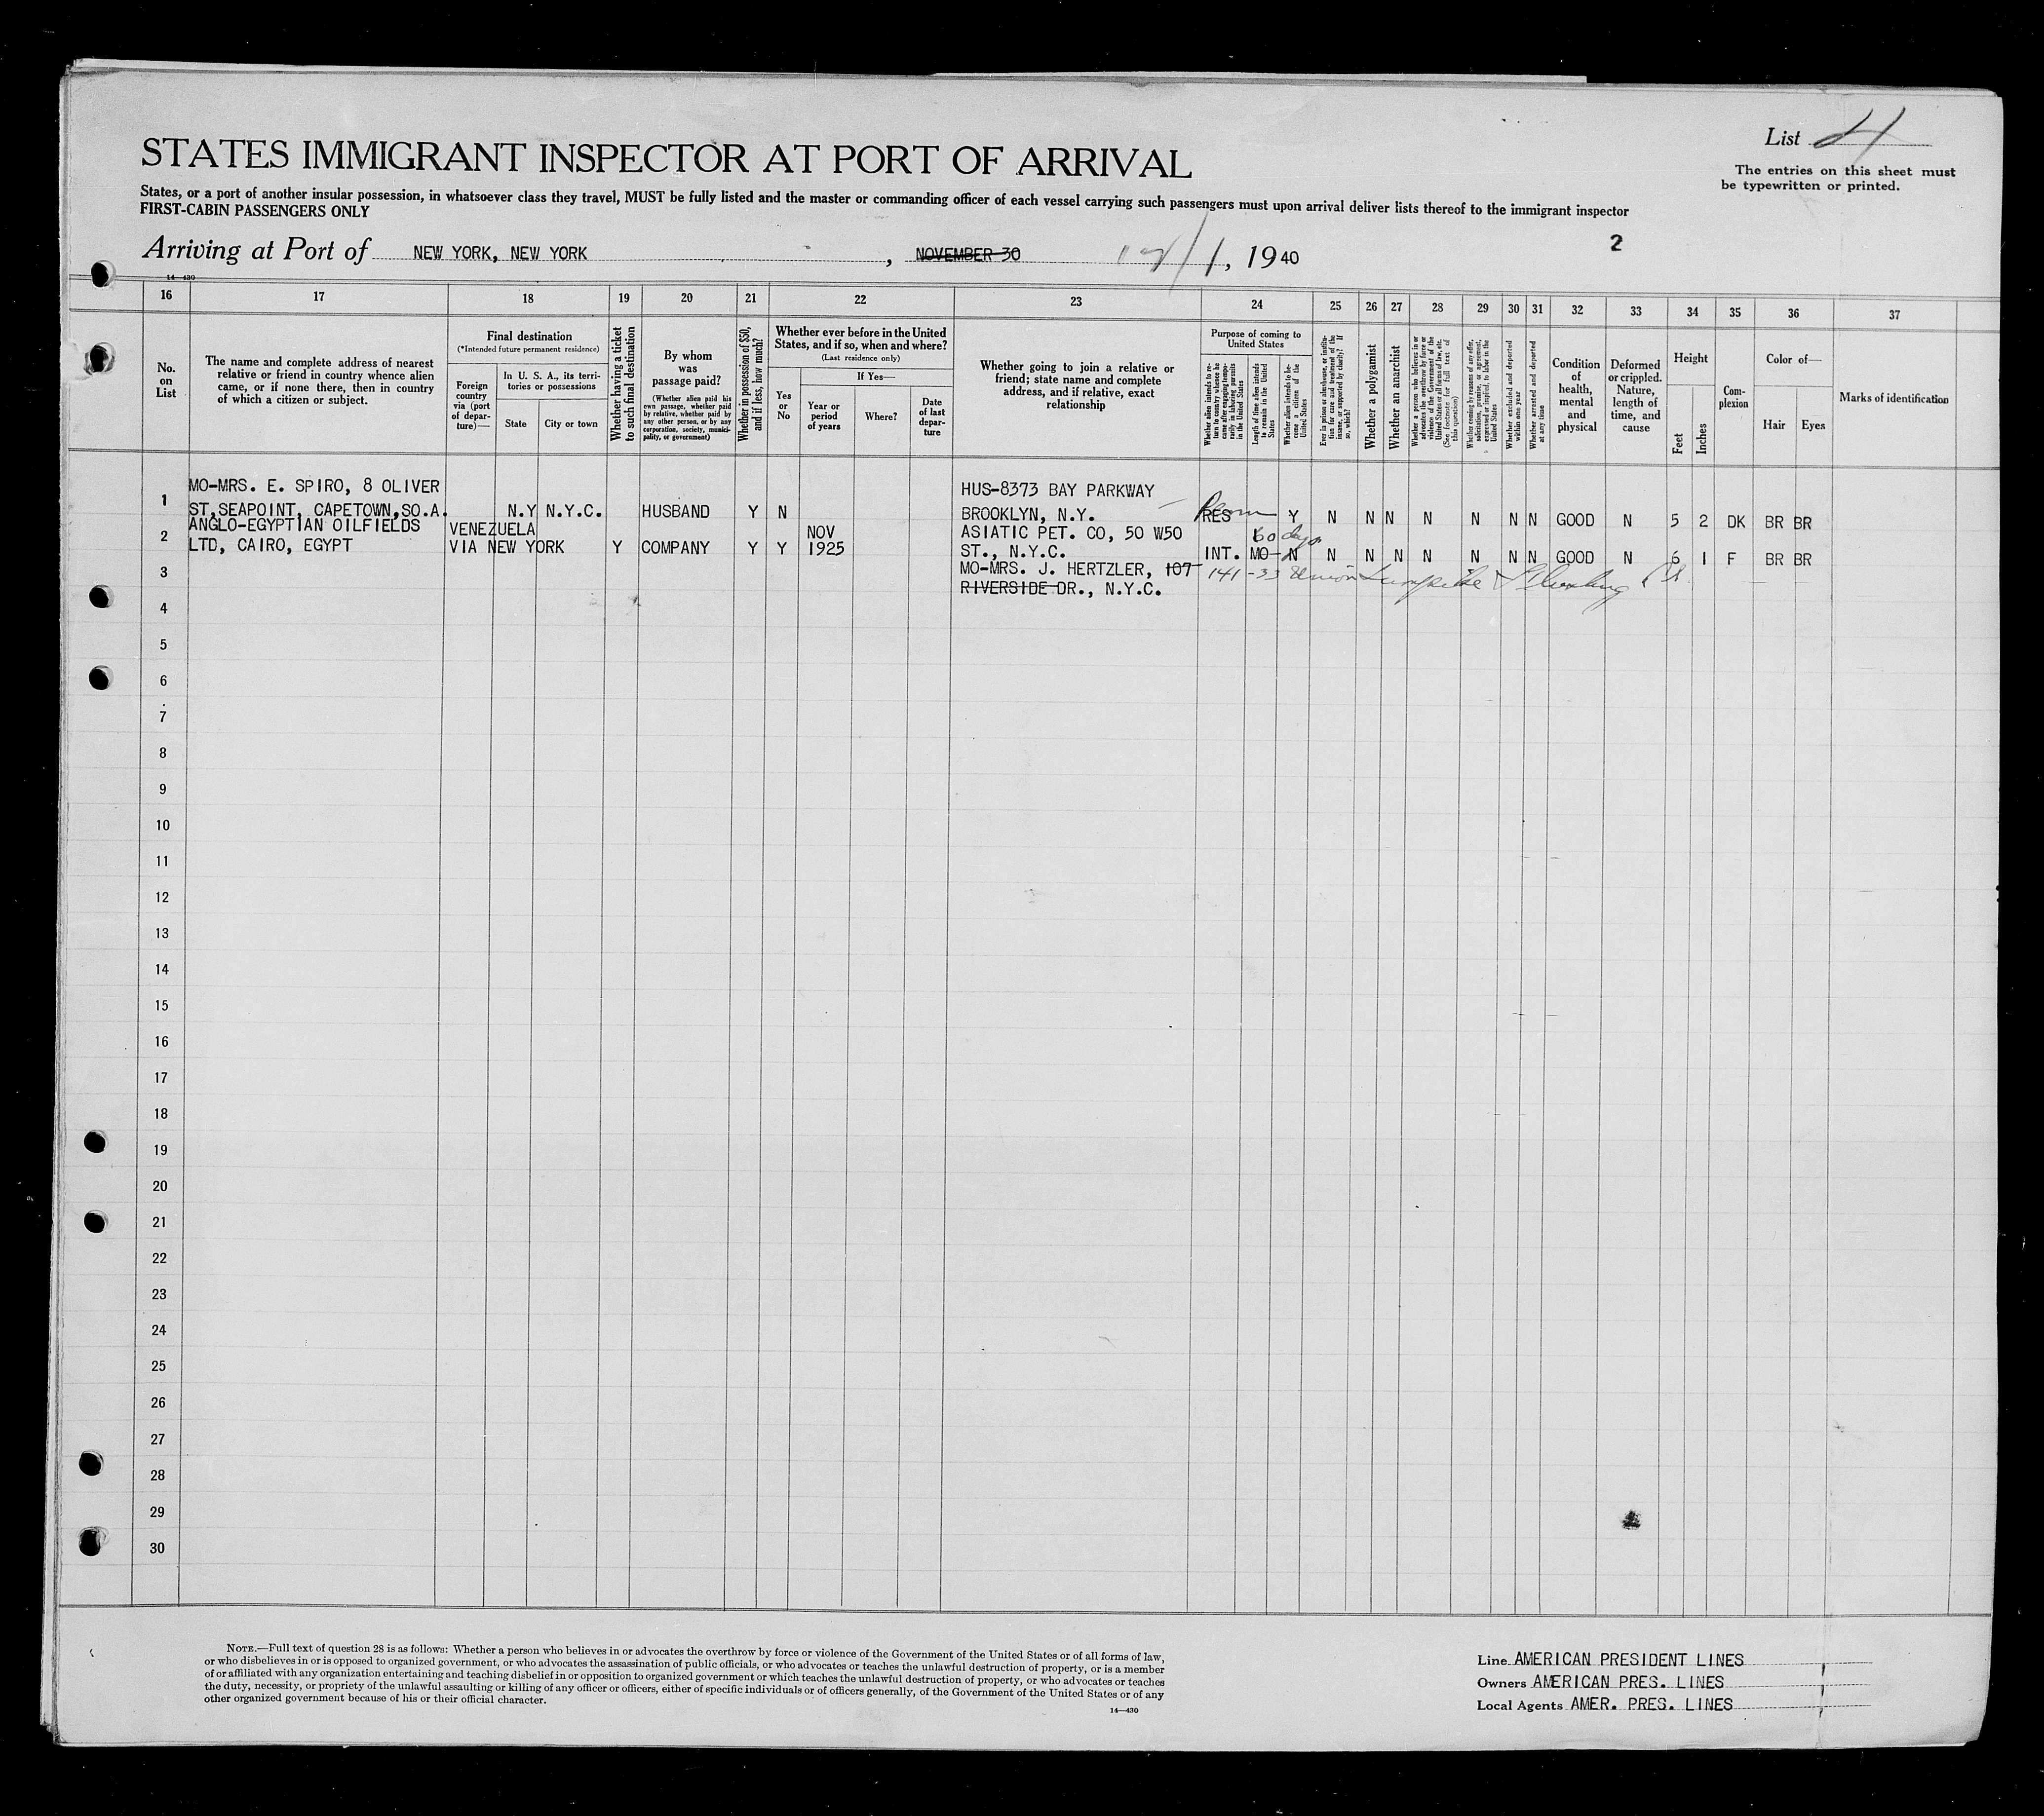 List 4
STATES IMMIGRANT INSPECTOR AT PORT OF ARRIVAL
The entries on this sheet must
be typewritten or printed.
States, or a port of another insular possession, in whatsoever class they travel, MUST be fully listed and the master or commanding officer of each vessel carrying such passengers must upon arrival deliver lists thereof to the immigrant inspector
FIRST-CABIN PASSENGERS ONLY
2
Arriving at Port of NEW YORK, NEW YORK, NOVEMBER 30 12/1, 1940
14—430
16 17 18 19 20 21 22 23 24 25 26 27 28 29 30 31 32 33 34 35 36 37
No.
on
List
The name and complete address of nearest
relative or friend in country whence alien
came, or if none there, then in country
of which a citizen or subject.
Final destination
(*Intended future permanent residence)
Foreign
country
via (port
of depar-
ture)—
In U. S. A., its terri-
tories or possessions
State
City or town
Whether having a ticket
to such final destination
By whom
was
passage paid?
(Whether alien paid his
own passage, whether paid
by relative, whether paid by
any other person, or by any
corporation, society, munici-
pality, or government)
Whether in possession of $50,
and if less, how much?
Whether ever before in the United
States, and if so, when and where?
(Last residence only)
Yes
or
No
If Yes—
Year or
period
of years
Where?
Date
of last
depar-
ture
Whether going to join a relative or
friend; state name and complete
address, and if relative, exact
relationship
Purpose of coming to
United States
Whether alien intends to re-
turn to country whence he
came after engaging tempo-
rarily in laboring pursuits
in the United States
Length of time alien intends
to remain in the United
States
Whether alien intends to be-
come a citizen of the
United States
Ever in prison or almshouse, or institu-
tion for care and treatment of the
insane, or supported by charity? If
so, which?
Whether a polygamist
Whether an anarchist
Whether a person who believes in or
advocates the overthrow by force or
violence of the Government of the
United States or all forms of law, etc.
(See footnote for full text of
this question)
Whether coming by reasons of any offer,
solicitation, promise, or agreement,
expressed or implied, to labor in the
United States
Whether excluded and deported
within one year
Whether arrested and deported
at any time
Condition
of
health,
mental
and
physical
Deformed
or crippled.
Nature,
length of
time, and
cause
Height
Feet
Inches
Com-
plexion
Color of—
Hair
Eyes
Marks of identification
MO-MRS. E. SPIRO, 8 OLIVER HUS-8373 BAY PARKWAY
1 ST,SEAPOINT, CAPETOWN,SO.A. N.Y N.Y.C. HUSBAND Y N BROOKLYN, N.Y. RES Perm Y N N N N N N N GOOD N 5 2 DK BR BR
ANGLO-EGYPTIAN OILFIELDS VENEZUELA NOV ASIATIC PET. CO, 50 W50 60 days
2 LTD, CAIRO, EGYPT VIA NEW YORK Y COMPANY Y Y 1925 ST., N.Y.C. INT. MO N N N N N N N N GOOD N 6 1 F BR BR
3 MO-MRS. J. HERTZLER, 107 141-33 Union Turnpike Flushing
RIVERSIDE DR., N.Y.C.
4
5
6
7
8
9
10
11
12
13
14
15
16
17
18
19
20
21
22
23
24
25
26
27
28
29
30
NOTE.—Full text of question 28 is as follows: Whether a person who believes in or advocates the overthrow by force or violence of the Government of the United States or of all forms of law,
or who disbelieves in or is opposed to organized government, or who advocates the assassination of public officials, or who advocates or teaches the unlawful destruction of property, or is a member
of or affiliated with any organization entertaining and teaching disbelief in or opposition to organized government or which teaches the unlawful destruction of property, or who advocates or teaches
the duty, necessity, or propriety of the unlawful assaulting or killing of any officer or officers, either of specific individuals or of officers generally, of the Government of the United States or of any
other organized government because of his or their official character.
14—430
Line AMERICAN PRESIDENT LINES
Owners AMERICAN PRES. LINES
Local Agents AMER. PRES. LINES